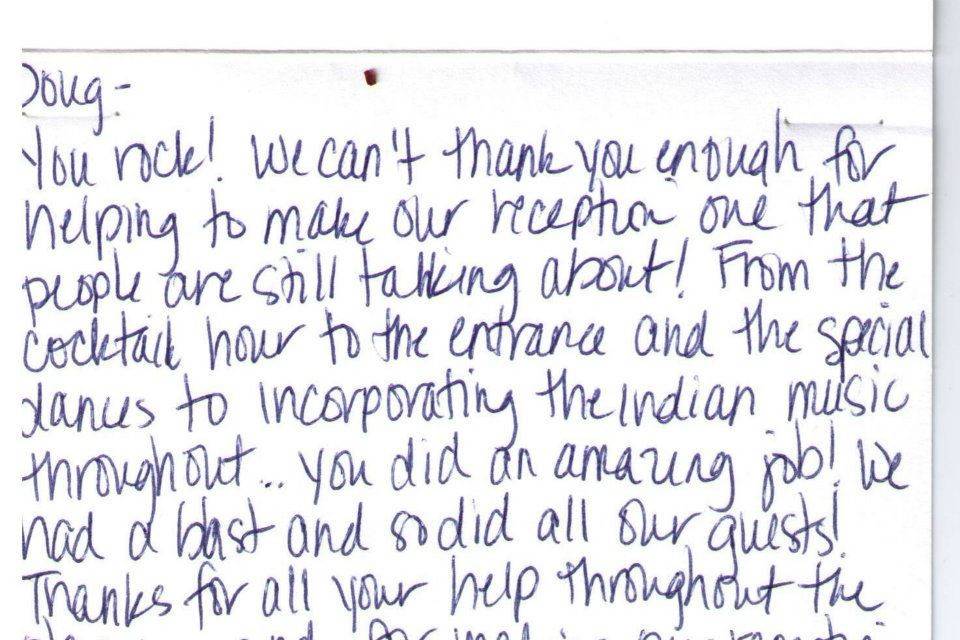 Doug-
You rock! We can't thank you enough for
helping to make our reception one that
people are still talking about! From the
cocktail hour to the entrance and the special
dances to incorporating the Indian music
throughout.. you did an amazing job! We
had a blast and so did all our guests!
Thanks for all your help throughout the